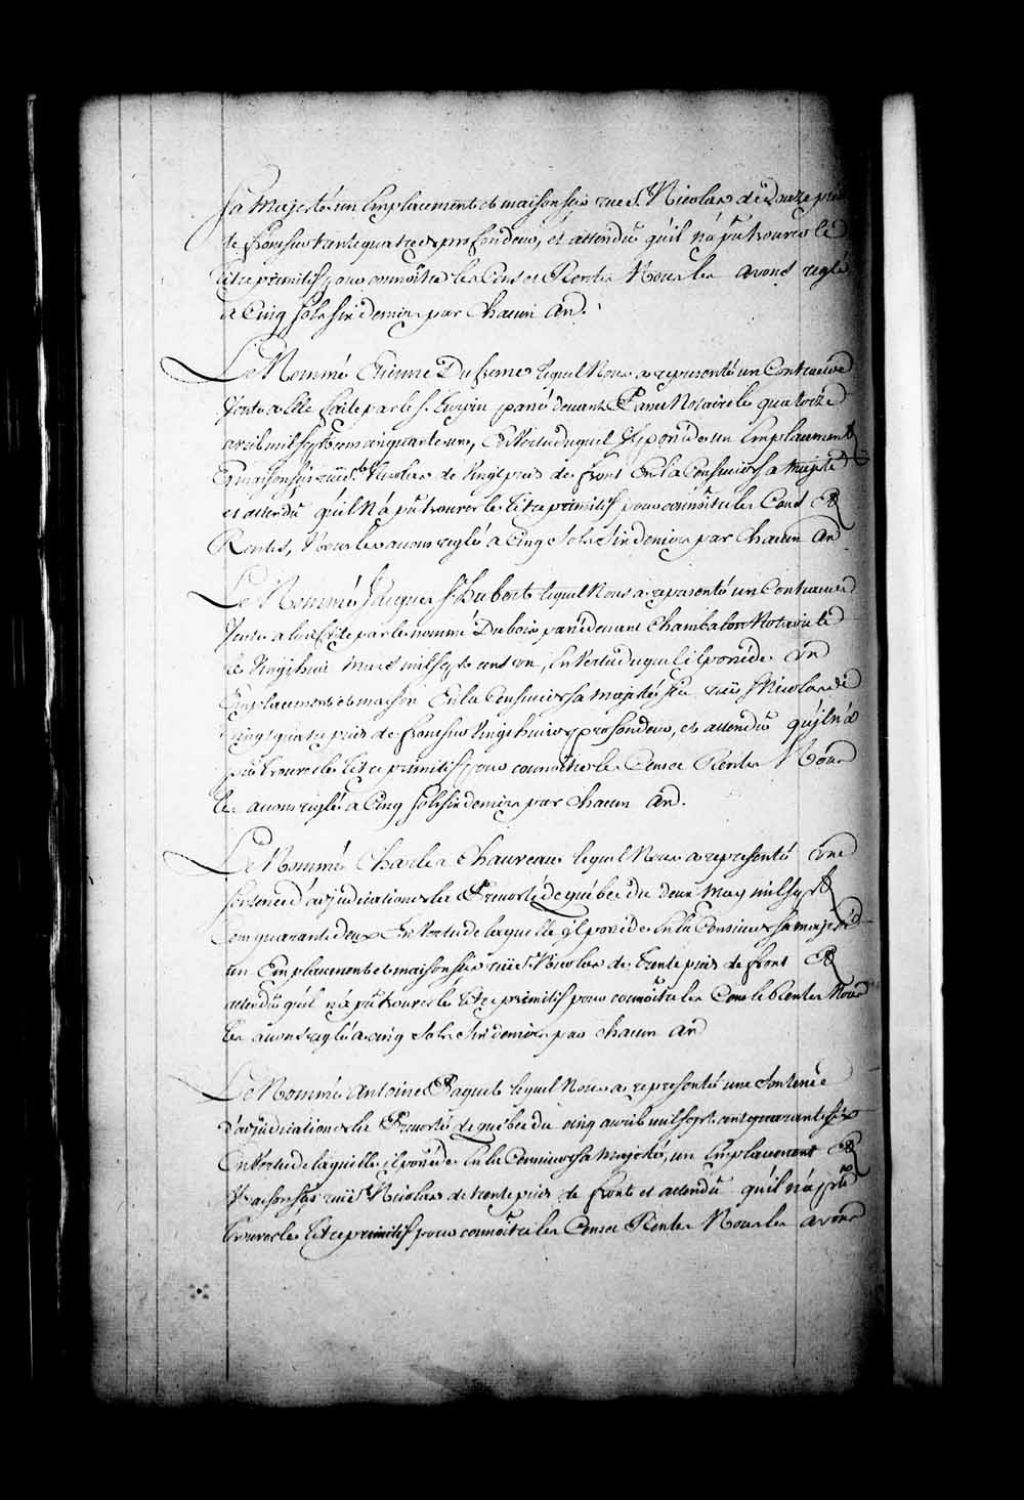 Sa Majesté un Emplacement et maison sçis rue St. Nicolas de Douze pieds
de front sur trente quatre de profondeur, et attendû qu'il n'a pû trouver le
titre primitif pour connoître les Cens et Rentes Nous les avons reglé
a Cinq sols six deniers par chacun an.
Le Nommé Etienne Dufresne lequel Nous a representé un Contract de
Vente a Elle faite par le S. Turpin passé devant Panet Notaire le quatorze
avril mil sept cent cinquante un, En Vertu duquel Il possede un Emplacement
Et maison sçis ruë St. Nicolas de Vingt pieds de front En la Censive de sa Majesté
et attendû qu'il N'a pû trouver le titre primitif pour connoître les Cens Et
Rentes, Nous les avons reglé a Cinq Sols Six deniers par chacun an
Le Nommé Jacques St. Hubert lequel Nous a representé un Contract de
Vente a lui faite par le nommé Dubois passé devant Chambalon Notaire le
le Vingt huit mars mil sept cent un, En Vertu duquel il possede un
Emplacement et maison En la Censive de sa Majesté sçis ruë St Nicolas de
vingt quatre pieds de front sur Vingt huit de profondeur, et attendû qu'il n'a
pû trouver le titre primitif pour connoître les Cens et Rentes Nous
les avons reglé a Cinq sols six deniers par chacun an.
Le Nommé Charles Chauveau lequel Nous a representé une
sentence d'adjudication de la Prevosté de quebec du deux may mil sept
cent quarante deux En Vertu de laquelle il possede En la Censive de sa majesté
un Emplacement et maison sçis ruë St. Nicolas de trente pieds de front Et
attendû qu'il n'a pû trouver le titre primitif pour connoître les Cens et Rentes Nous
les avons reglé a cinq Sols Six deniers par chacun an
Le Nommé Antoine Paquet lequel Nous a representé une Sentence
d'adjudication de la Prevosté de quebec du cinq avril mil sept cent quarante six
En Vertu de laquelle il possede En la Censive de sa Majesté, un Emplacement Et
Maison sçis ruë St. Nicolas de trente pieds de front et attendû qu'il n'a pû
trouver le titre primitif pour connoître les Cens et Rentes Nous les avons